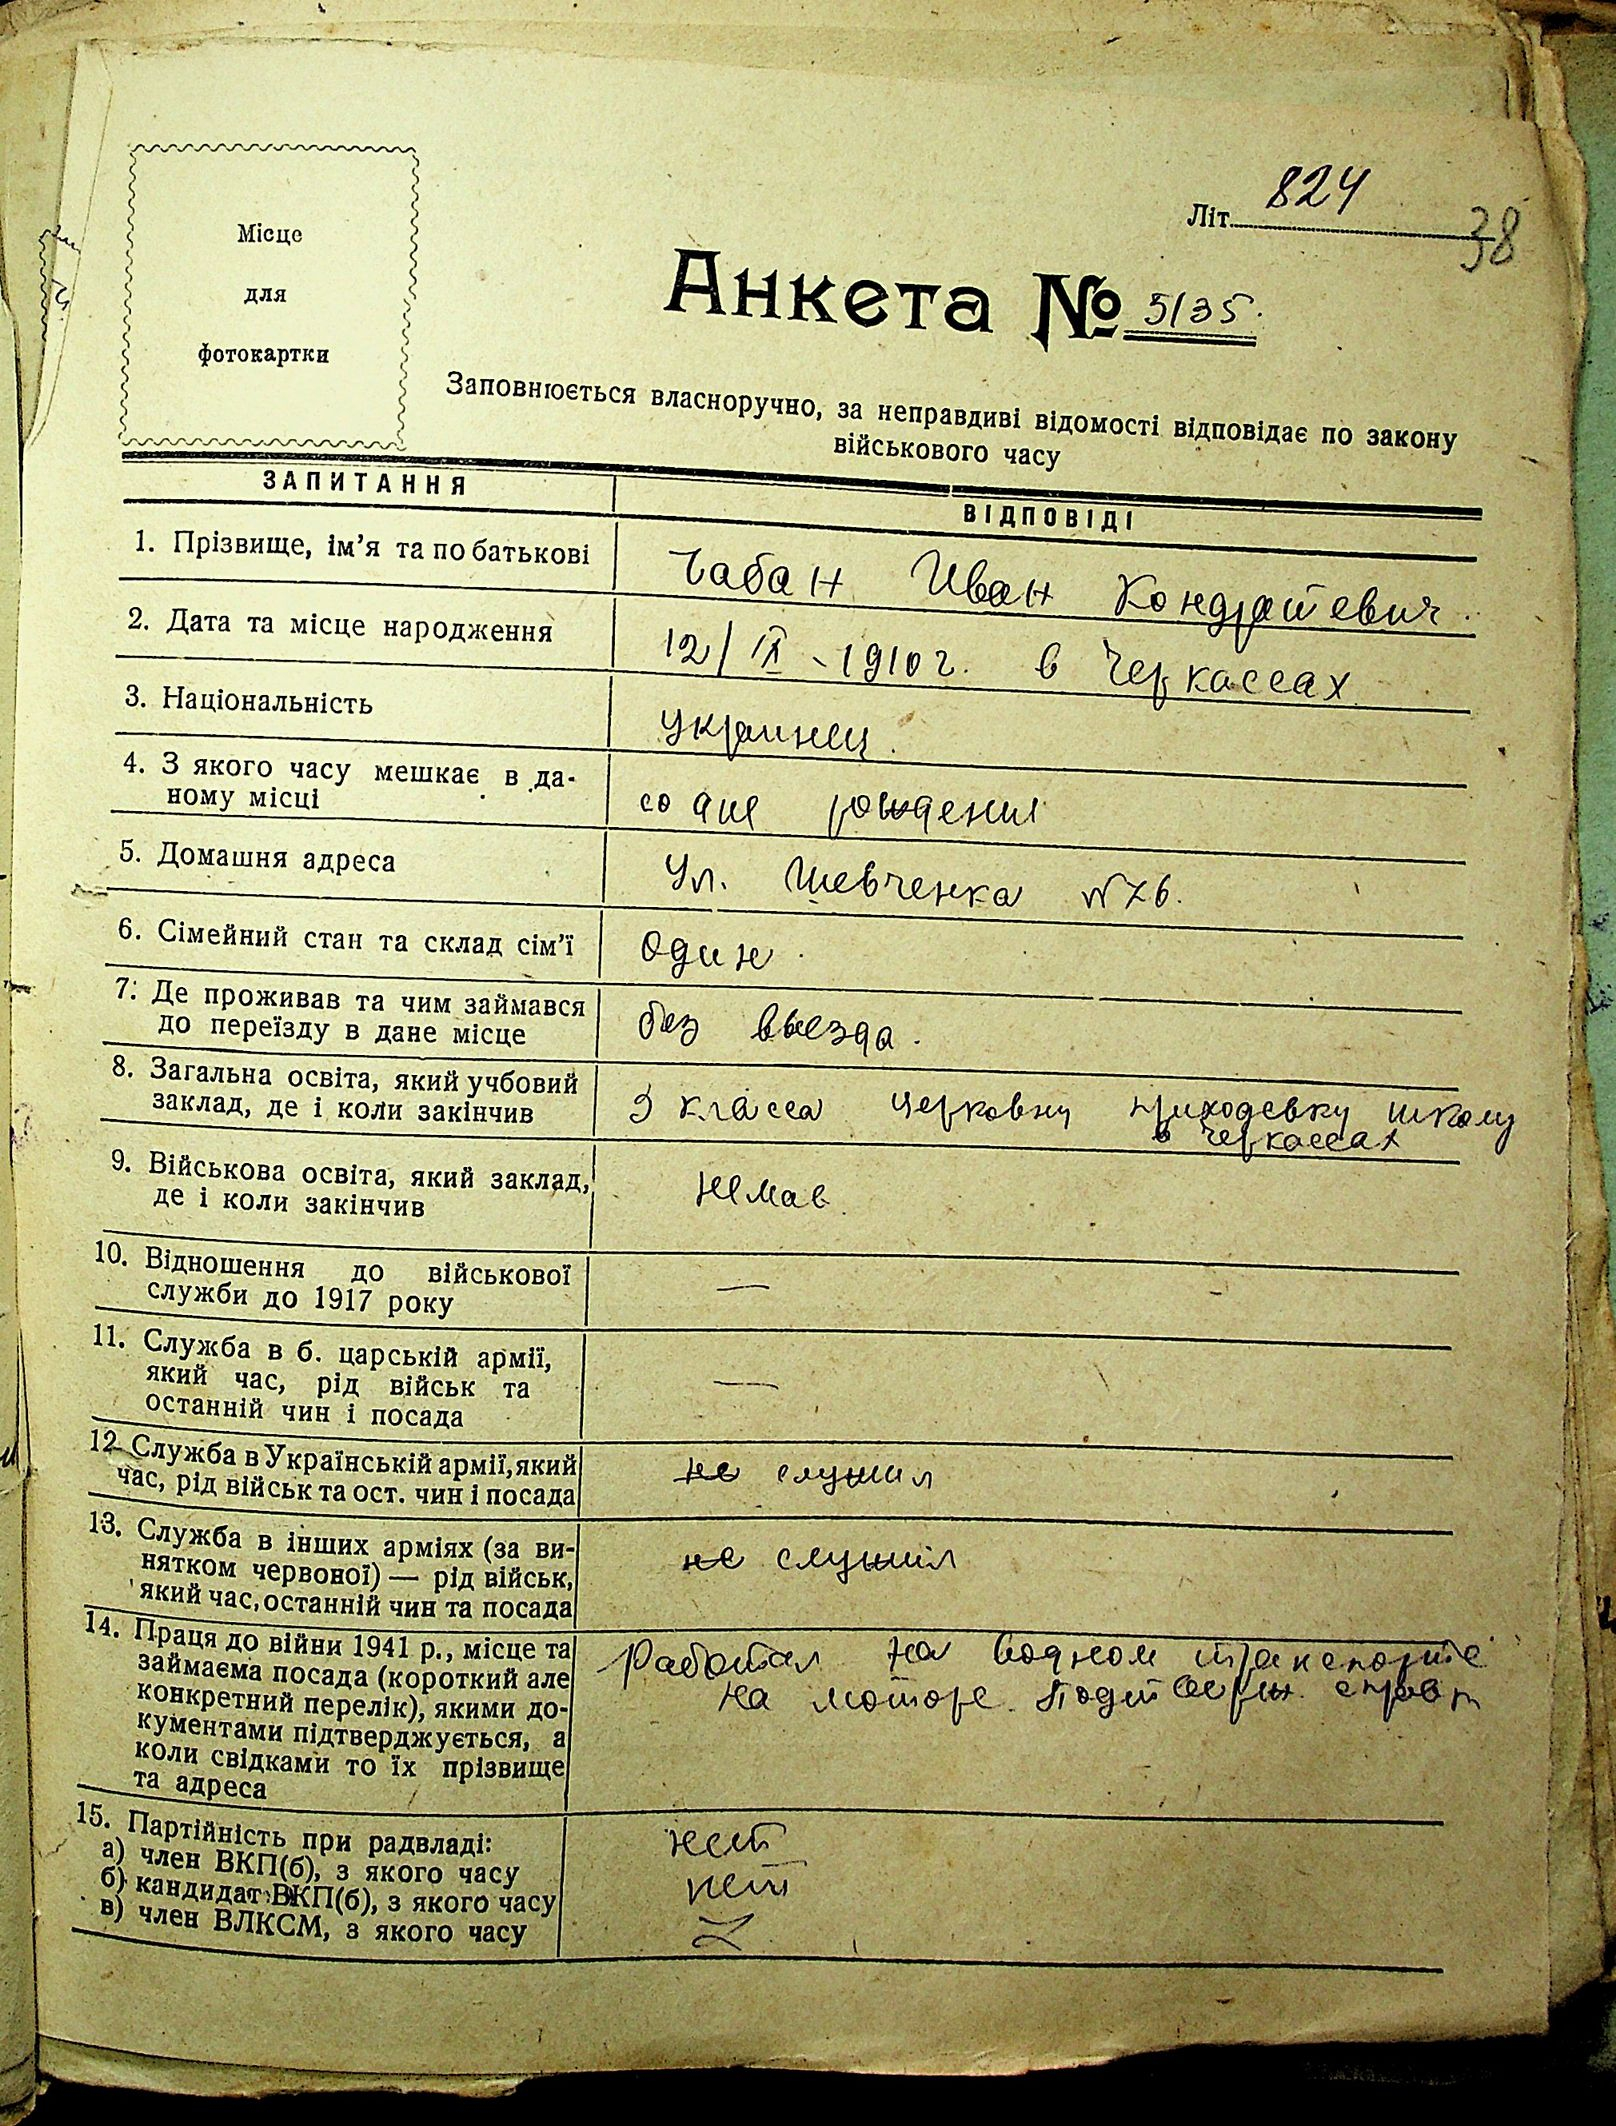 Місце
для
фотокартки
Літ. 824
38
Анкета № 5/35.
Заповнюється власноручно, за неправдиві відомості відповідає по закону
військового часу
ЗАПИТАННЯ
ВІДПОВІДІ
1. Прізвище, ім'я та по батькові
Чабан Иван Кондратевич.
2. Дата та місце народження
12/IX - 1910 г. в Черкассах
3. Національність
украинец.
4. З якого часу мешкає в да-
ному місці
со дня рождения
5. Домашня адреса
Ул. Шевченка №76.
6. Сімейний стан та склад сім'ї
Один.
7. Де проживав та чим займався
до переїзду в дане місце
без выезда.
8. Загальна освіта, який учбовий
заклад, де і коли закінчив
3 класса церковну приходевку школу
в Черкассах
9. Військова освіта, який заклад,
де і коли закінчив
немав
10. Відношення до військової
служби до 1917 року
—
11. Служба в б. царській армії,
який час, рід військ та
останній чин і посада
—
12. Служба в Українській армії, який
час, рід військ та ост. чин і посада
не служил
13. Служба в інших арміях (за ви-
нятком червоної) — рід військ,
який час, останній чин та посада
не служил
14. Праця до війни 1941 р., місце та
займаєма посада (короткий але
конкретний перелік), якими до-
кументами підтверджується, а
коли свідками то їх прізвище
та адреса
Работал на водном транспорте
на моторе.
15. Партійність при радвладі:
а) член ВКП(б), з якого часу
б) кандидат ВКП(б), з якого часу
в) член ВЛКСМ, з якого часу
нет
нет